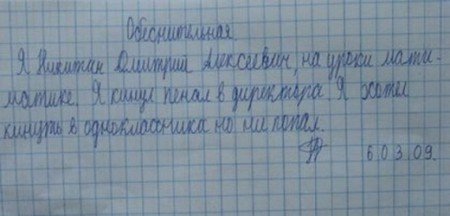 Обеснительная
Я Никитин Дмитрий Алексеевич, на уроки мати-
матике. Я кинул пенал в директора Я хотел
кинуть в одноклассника но ни попал.
6.03.09.